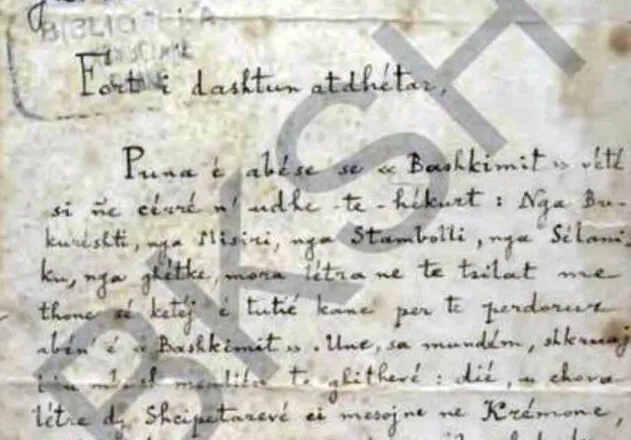 BIBLIOTEKA
Fort i dashtun atdhétar,
Puna é abése se « Bashkimit » vété
si ñe cérré n' udhe - te - hékurt : Nga Bu-
kuréshti, nga Misiri, nga Stambolli, nga Sélani-
ku, nga ghétke, mora létra ne te tsilat me
thone sé ketéj é tutié kane per te perdorure
abén' é « Bashkimit ». Une, sa mundém, shkruaj
te ghithevé : dié, u chova
létre dy Shcipetarevé ci mesojne ne Krémone,
BKSH